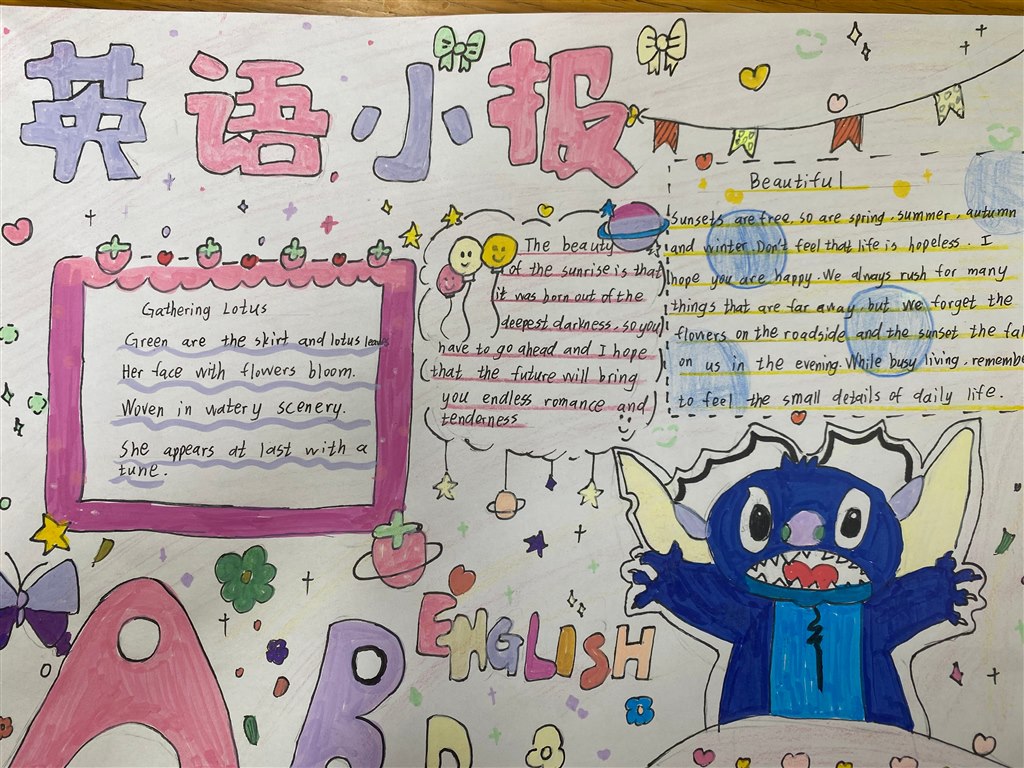 英语小报
Gathering Lotus
Green are the skirt and lotus leaves
Her face with flowers bloom.
Woven in watery scenery.
She appears at last with a
tune.
The beauty
of the sunrise is that
it was born out of the
deepest darkness, so you
have to go ahead and I hope
that the future will bring
you endless romance and
tenderness
Beautiful
Sunsets are free, so are spring, summer, autumn
and winter. Don't feel that life is hopeless. I
hope you are happy. We always rush for many
things that are far away, but we forget the
flowers on the roadside and the sunset the fal
on us in the evening. While busy living, remembe
to feel the small details of daily life.
ENGLISH
A B D